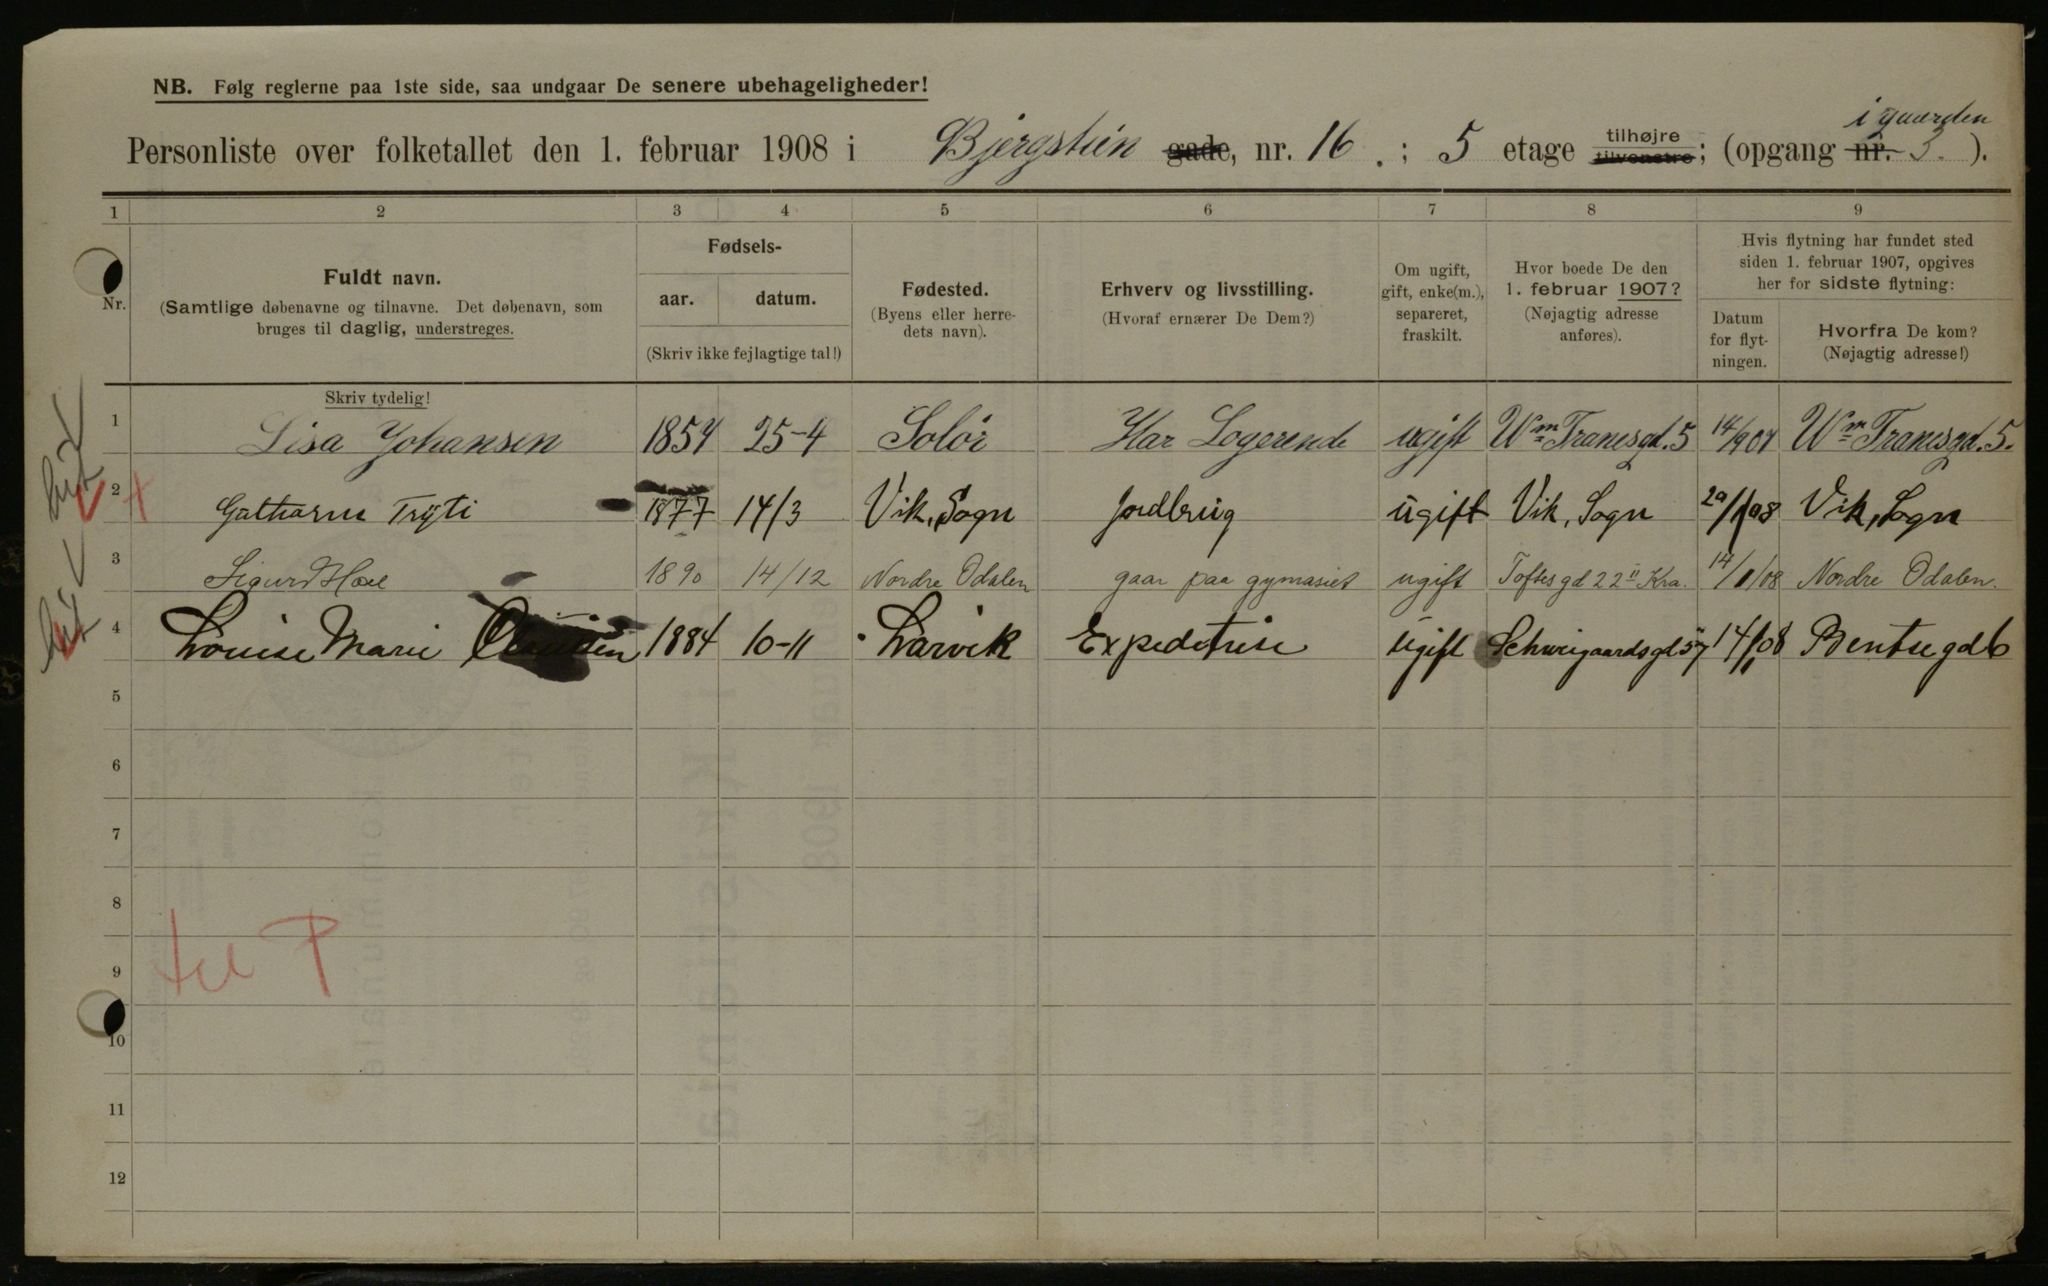 NB. Følg reglerne paa 1ste side, saa undgaar De senere ubehageligheder!
i gaarden
Personliste over folketallet den 1. februar 1908 i Bjergstien gade, nr. 16. ; 5 etage tilhøjre tilvenstre; (opgang nr. 3. ).
1 2 3 4 5 6 7 8 9
Nr.
Fuldt navn.
(Samtlige døbenavne og tilnavne. Det døbenavn, som
bruges til daglig, understreges.
Fødsels-
aar. datum.
(Skriv ikke fejlagtige tal!)
Fødested.
(Byens eller herre-
dets navn).
Erhverv og livsstilling.
(Hvoraf ernærer De Dem?)
Om ugift,
gift, enke(m.),
separeret,
fraskilt.
Hvor boede De den
1. februar 1907?
(Nøjagtig adresse
anføres).
Hvis flytning har fundet sted
siden 1. februar 1907, opgives
her for sidste flytning:
Datum
for flyt-
ningen.
Hvorfra De kom?
(Nøjagtig adresse!)
Skriv tydelig!
1 Lisa Johansen 1854 25-4 Solør Har Logerende ugift Wm Tranesgd. 5 14/9 07 Wm Tranesgd. 5.
2 Trÿti 1877 14/3 Vik, Sogn Jordbrug ugift Vik, Sogn /1 08 Vik, Sogn
3 Sigurd Hoel 1890 14/12 Nordre Odalen gaar paa gymasiet ugift Toftes gd 22 II Kra. 14/1/08 Nordre Odalen.
4 Louise Marie Clausen 1884 10-11 Larvik Expeditrise ugift Schweigaardsgd 57 14/1 08 Bentsegd 6
5
6
7
8
9
10
11
12
til P